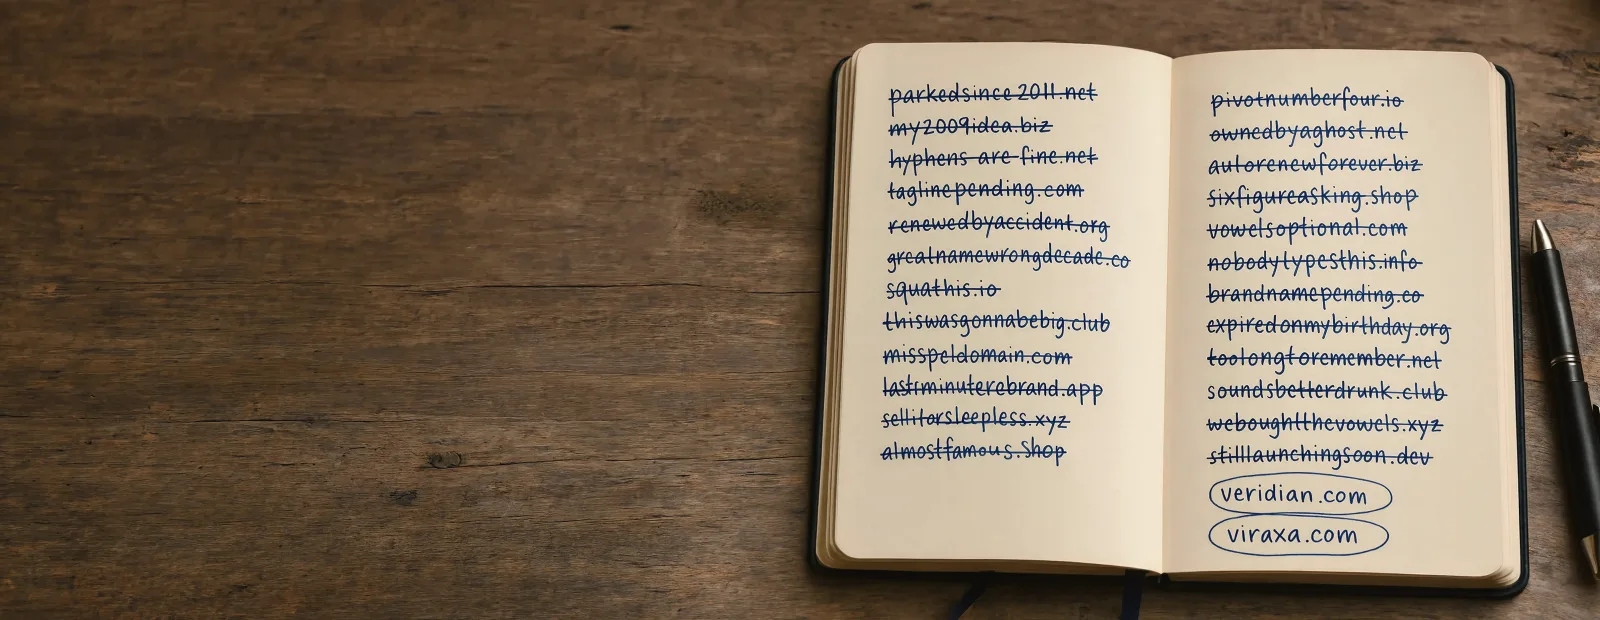 parkedsince2011.net
my2009idea.biz
hyphens-are-fine.net
taglinepending.com
renewedbyaccident.org
greatnamewrongdecade.co
squathis.io
thiswasgonnabebig.club
misspeldomain.com
lastminuterebrand.app
sellitorsleepless.xyz
almostfamous.shop
pivotnumberfour.io
ownedbyaghost.net
autorenewforever.biz
sixfigureasking.shop
vowelsoptional.com
nobodytypesthis.info
brandnamepending.co
expiredonmybirthday.org
toolongtoremember.net
soundsbetterdrunk.club
weboughtthevowels.xyz
stilllaunchingsoon.dev
veridian.com
viraxa.com